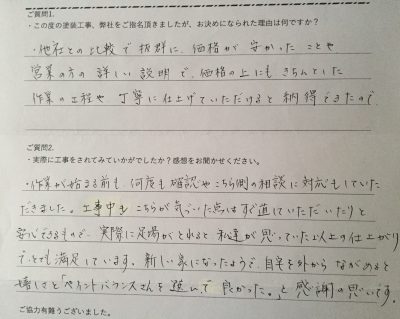 ご質問1.
・この度の塗装工事、弊社をご指名頂きましたが、お決めになられた理由は何ですか？
・他社との比較で抜群に、価格が安かったことや
営業の方の詳しい説明で、価格の上にもきちんとした
作業の工程や丁寧に仕上げていただけると納得できたので
ご質問2.
・実際に工事をされてみていかがでしたか？感想をお聞かせください。
・作業が始まる前も、何度も確認やこちら側の相談に対応もしていた
だきました。工事中もこちらが気づいた点はすぐ直していただいたりと
安心できるもので、実際に足場がとれると私達が思っていた以上の仕上がり
で、とても満足しています。新しい家になったようで、自宅を外からながめると
嬉しさと「ペイントバランスさんを選んで良かった。」と感謝の思いです。
ご協力有難うございました。